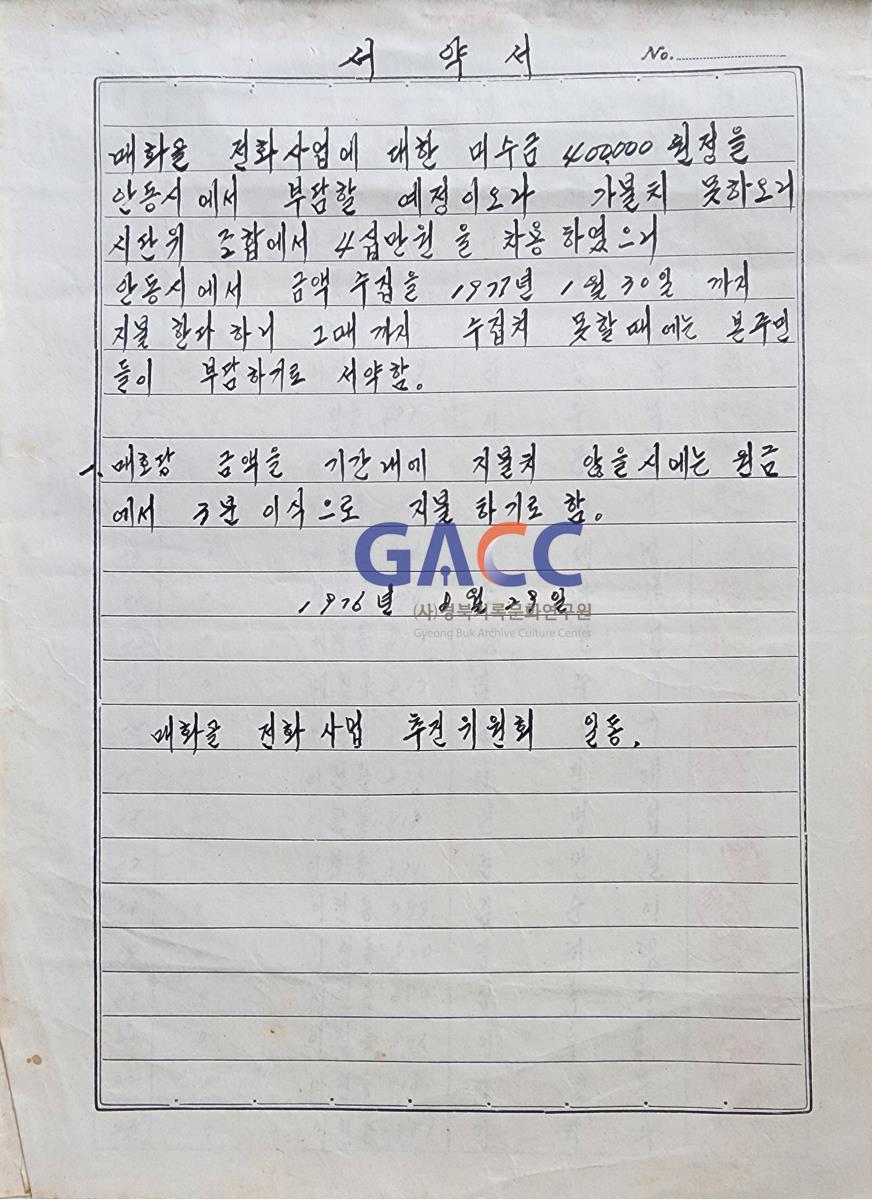 서 약 서 No.
매화골 전화사업에 대한 미수금 400,000원정을
안동시에서 부담할 예정이오라 가불치 못하오리
시단위 조합에서 4십만원을 차용하였으니
안동시에서 금액 수집을 1977년 1월 30일 까지
지불한다 하니 그때까지 수집치 못할때에는 본주민
들이 부담하기로 서약함.
금액을 기간내에 지불치 않을시에는 원금
에서 3분 이식으로 지불 하기로 함.
GACC
1976년 8월 28일
(사)경북기록문화연구원
Gyeong Buk Archive Culture Center
매화골 전화사업 추진위원회 일동.